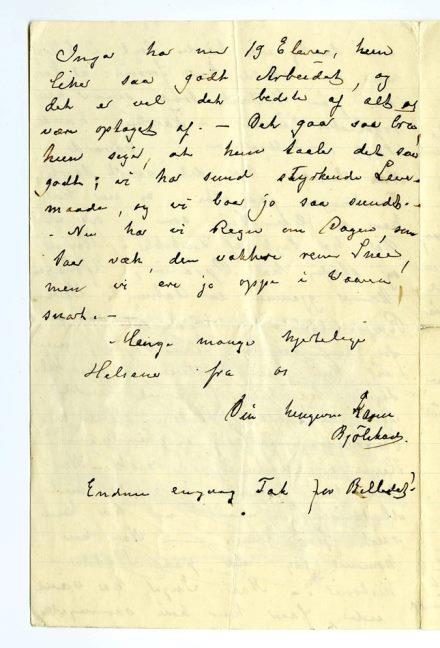 Inga har nu 19 Elever, hun
liker saa godt Arbeidet, og
det er vel det bedste af alt at
være optaget af. — Det gaar saa bra,
hun siger, at hun taaler det saa
godt; vi har sund styrkende Leve-
maade, og vi boer jo saa sundt. -
- Nu har vi Regn om Dagen, som
taar væk den vakkre rene Snee,
men vi ere jo oppe i Vaaren,
snart. —
Mange mange hjertelige
Helsener fra os
Din hengivne Karen
Endnu engang Tak for Billedet!